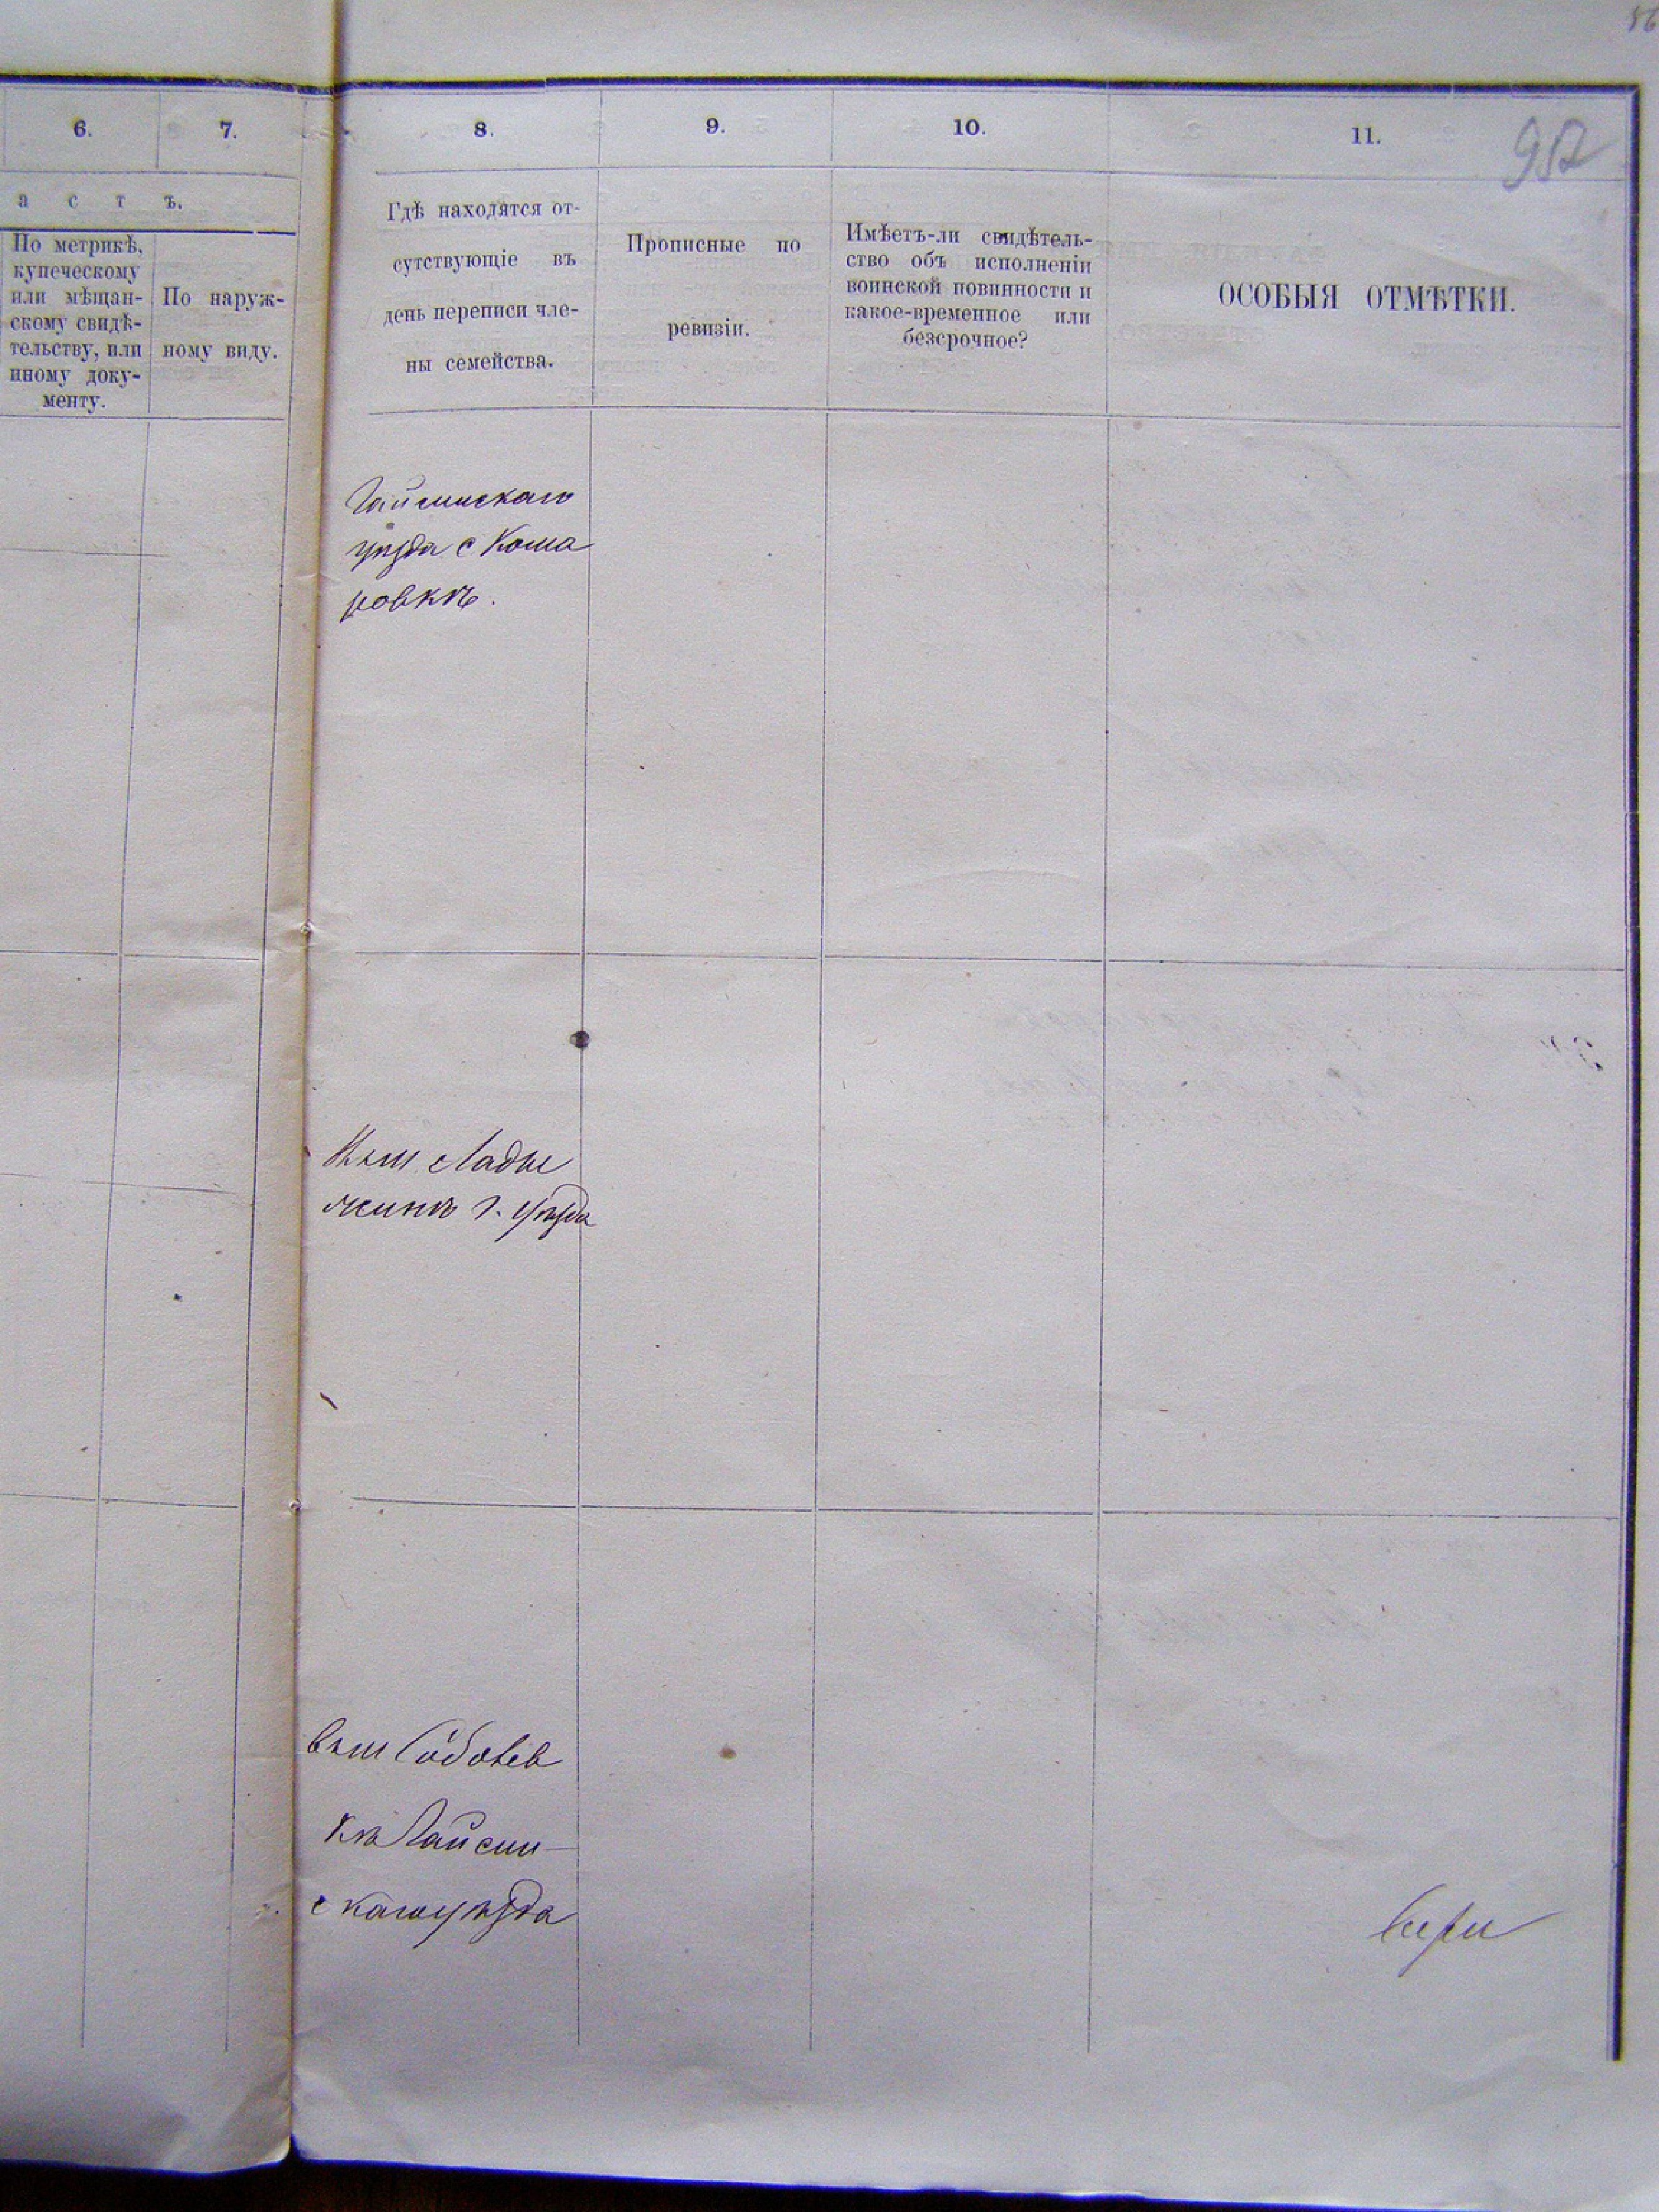 6.
7.
8.
9.
10.
11.
а с т ъ.
По метрикѣ,
купеческому
или мѣщан-
скому свидѣ-
тельству, или
иному доку-
менту.
По наруж-
ному виду.
Гдѣ находятся от-
сутствующіе въ
день переписи чле-
ны семейства.
Прописные по
ревизіи.
Имѣетъ-ли свидѣтель-
ство объ исполненіи
воинской повинности и
какое-временное или
безсрочное?
ОСОБЫЯ ОТМѢТКИ.
Гайсинскаго
уѣзда с Кома
ровкѣ.
Лады
жинѣ Г. уѣзда
Соболев
кѣ Гайсин
скаго уѣзда